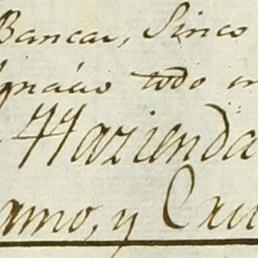 Bancas, Sinco
todo
Hazienda
amo, y Cru